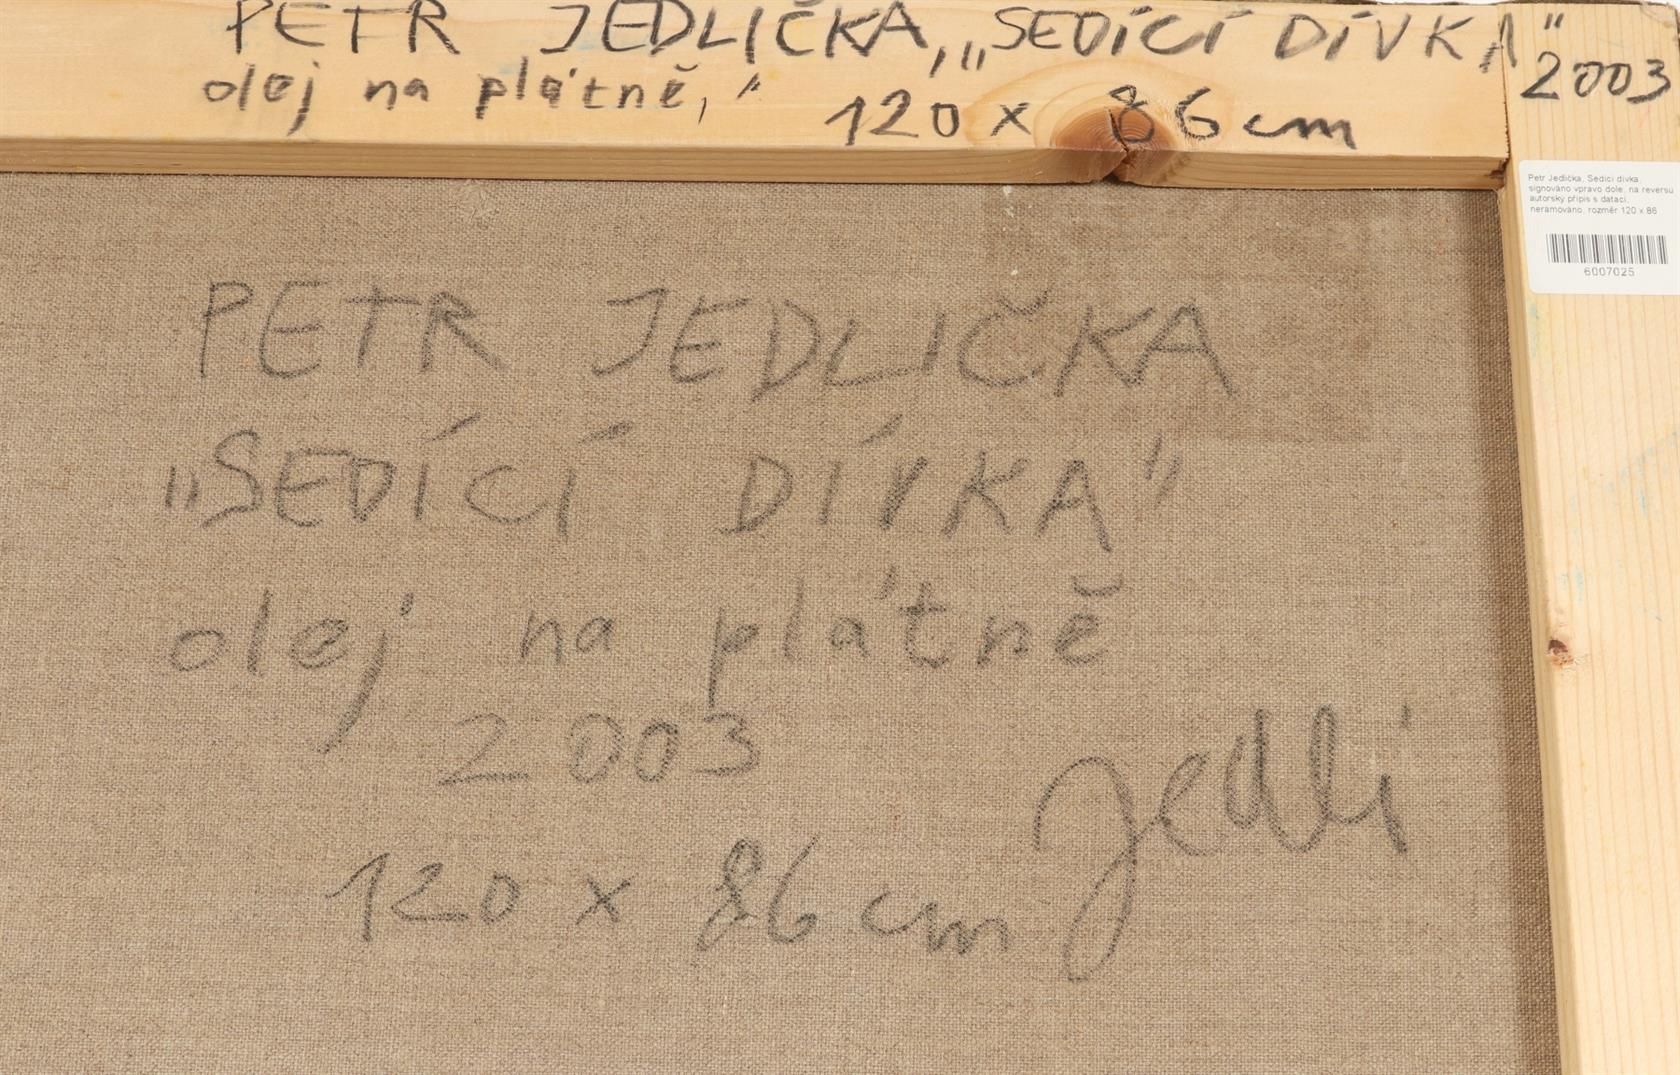 PETR JEDLIČKA, „SEDÍCÍ DÍVKA"
olej na plátně, " 120 x 86 cm
2003
Petr Jedlička, Sedící dívka,
signováno vpravo dole, na reversu
autorský přípis s datací,
nerámováno, rozměr 120 x 86
6007025
PETR JEDLIČKA
„SEDÍCÍ DÍVKA"
olej na plátně
2003
120 x 86 cm
Jedli